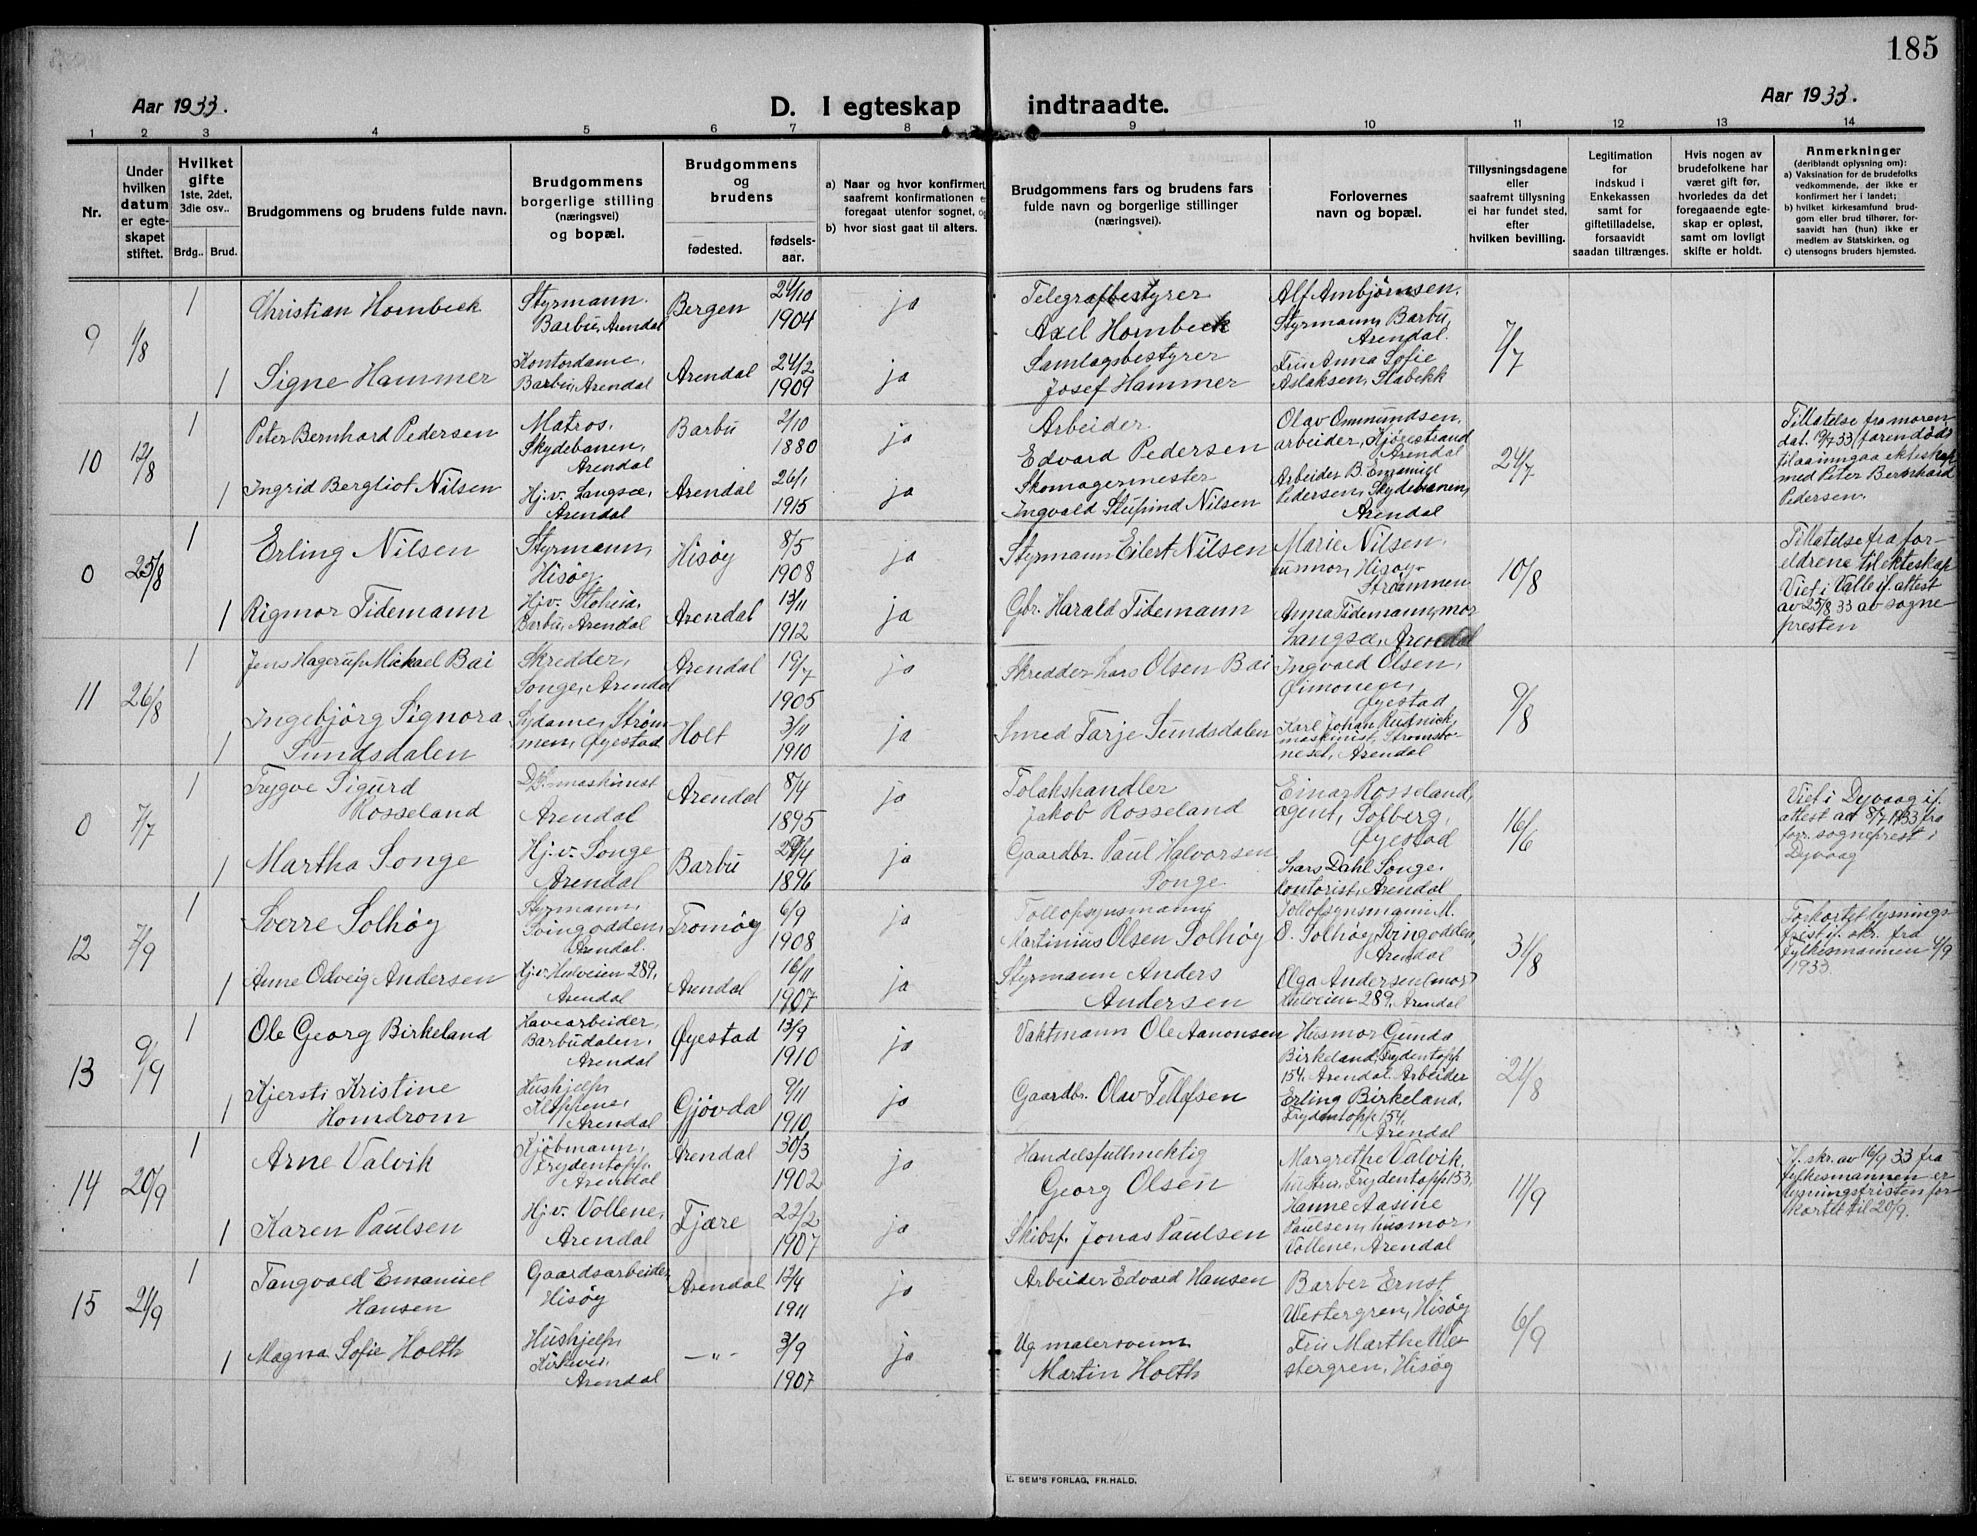 185
Aar 1933.
D. I egteskap indtraadte.
Aar 1933.
1 2 3 4 5 6 7 8 9 10 11 12 13 14
Nr.
Under hvilken datum er egteskapet stiftet.
Hvilket gifte 1ste, 2det, 3die osv..
Brdg.. Brud.
Brudgommens og brudens fulde navn.
Brudgommens borgerlige stilling (næringsvei) og bopæl.
Brudgommens og brudens
fødested. fødsels-aar.
a) Naar og hvor konfirmert, saafremt konfirmationen foregaat utenfor sognet,
b) hvor sidst gaat til alters.
Brudgommens fars og brudens fars fulde navn og borgerlige stillinger (næringsvei).
Forlovernes navn og bopæl.
Tillysningsdagene eller saafremt tillysning ei har fundet sted, efter hvilken bevilling.
Legitimation for indskud i Enkekassen samt for giftetilladelse, forsaavidt saadan tiltrænges.
Hvis nogen av brudefolkene har været gift før, hvorledes da det foregaaende egteskap er opløst, samt om lovligt skifte er holdt.
Anmerkninger (deriblandt oplysning om): a) Vaksination for de brudefolks vedkommende, der ikke er konfirmert her i landet; b) hvilket kirkesamfund brudgom eller brud tilhører, forsaavidt han (hun) ikke er medlem av Statskirken, og c) utensogns bruders hjemsted.
9 1/8
1 Christian Hornbeck Styrmann. Barbu, Arendal Bergen 24/10 1904 ja Telegrafbestyrer Axel Hornbeck Alf Ambjørnsen, Styrmann, Barbu, Arendal. 7/7
1 Signe Hammer Kontordame, Barbu, Arendal Arendal 24/2 1909 ja Samlagsbestyrer Josef Hammer Fru Anna Sofie Aslaksen, Stabekk
10 12/8
1 Peter Bernhard Pedersen Matros, Skydebanen, Arendal Barbu 2/10 1880 ja Arbeider Edvard Pedersen Olav Ommundsen, arbeider, Arendal 24/7
1 Ingrid Bergliot Nilsen Hj.v. Langsæ, Arendal Arendal 26/1 1915 ja Skomagermester Ingvald Nilsen Arbeider B. Emanuel Pedersen, Skydebanen, Arendal
Tillatelse fra moren dat. 19/7 33 (faren død) til aa inngaa ekteskap med Peter Bernhard Pedersen.
0 25/8
1 Erling Nilsen Styrmann, Hisøy Hisøy 8/5 1908 ja Styrmann Eilert Nilsen Marie Nilsen, husmor, Hisøy Strømmen 10/8
1 Rigmor Tidemann Hj.v. Stoheia, Barbu, Arendal Arendal 13/11 1912 ja Gbr. Harald Tidemann Anna Tidemann, mor Langsæ, Arendal
Tillatelse fra foreldrene til ekteskap Viet i Valle if. attest av 25/8 33 av sogne-presten
11 26/8
1 Jens Hagerup Mickael Bai Skredder, Songe, Arendal Arendal 19/7 1905 ja Skredder Lars Olsen Bai Ingvald Olsen, Øyestad 9/8
1 Ingebjørg Signora Sundsdalen Sydame, Strømmen, Øyestad Holt 3/11 1910 ja Smed Tarje Sundsdalen Karl Johan Rudnick, maskinist, Strømsboneset, Arendal
0 7/7
1 Trygve Sigurd Rosseland D/S. maskinist Arendal Arendal 8/4 1895 ja Tolakshandler Jakob Rosseland Einar Rosseland, agent, Solberg, Øyestad 16/6
1 Martha Songe Hj.v. Songe Arendal Barbu 29/4 1896 ja Gaardbr. Paul Halvorsen Songe Lars Dahl Songe, kontorist, Arendal
Viet i Dyvaag if. attest av 8/7 1933 fra sogneprest i Dyvaag
12 7/9
1 Sverre Solhøg Styrmann, Svingodden, Arendal. Tromøy 6/9 1908 ja Tollopsynsmann Martinius Olsen Solhøg Tollopsynsmann M. O. Solhøg, Svingodden, Arendal 31/8
1 Anne Odveig Andersen Hj.v. Hulveien 289, Arendal Arendal 16/11 1907 ja Styrmann Anders Andersen Olga Andersen (mor) Hulveien 289, Arendal
Forkortet lysningsfrist if. skr. fra Fylkesmannen 4/9 1933.
13 9/9
1 Ole Georg Birkeland Havearbeider, Barbudalen, Arendal Øyestad 13/9 1910 ja Vaktmann Ole Aanonsen Husmor Gunda Birkeland, Frydentopp 154, Arendal. Arbeider 21/8
1 Kjersti Kristine Homdrom Hushjelp, Kloppene, Arendal Gjøvdal 9/11 1910 ja Gaardbr. Olav Tellefsen Erling Birkeland, Frydentopp 154, Arendal
14 20/9
1 Arne Valvik Kjøbmann, Frydentopp, Arendal Arendal 30/3 1902 ja Handelsfullmektig Georg Olsen Margrethe Valvik, hustru, Frydentopp 153, 11/9
1 Karen Paulsen Hj.v. Vollene, Arendal Fjære 22/2 1907 ja Skibsf. Jonas Paulsen Hanne Aasine Paulsen, husmor, Vollene, Arendal
If. skr. av 16/9 33 fra fylkesmannen er lysningsfristen forkortet til 20/9.
15 21/9
1 Tangvald Emanuel Hansen Gaardsarbeider Hisøy Arendal 12/4 1911 ja Arbeider Edvard Hansen Barber Ernst Westergren, Hisøy 6/9
1 Magna Sofie Holth Hushjelp, Kirkvei, Arendal —"— 3/9 1907 ja Ug malersvenn Martin Holth Fru Marthe Westergren, Hisøy
E. SEM'S FORLAG, FR.HALD.